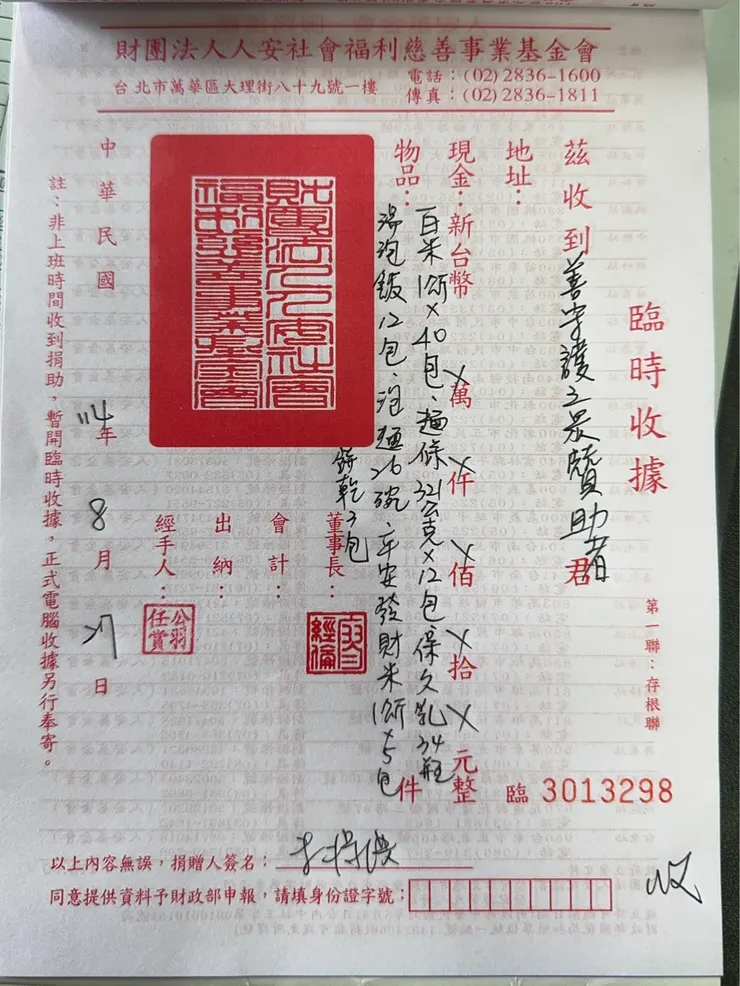 財團法人人安社會福利慈善事業基金會
電話：(02)2836-1600
台北市萬華區大理街八十九號一樓
傳真：(02)2836-1811
臨時收據
第一聯：存根聯
茲收到善字護立眾贊助者君
地址：
現金：新台幣X萬X仟X佰X拾X元整
物品：白米1斤X40包、麵條3公克X12包、保久乳34瓶
湯泡飯12包、泡麵26碗、平安發財米1斤X5包件
餅乾3包
財團法人人安社會福利慈善事業基金會
董事長：
會計：
出納：
經手人：
中華民國114年8月27日
註：非上班時間收到捐助，暫開臨時收據，正式電腦收據另行奉寄。
臨 3013298
以上內容無誤，捐贈人簽名：
同意提供資料予財政部申報，請填身份證字號：